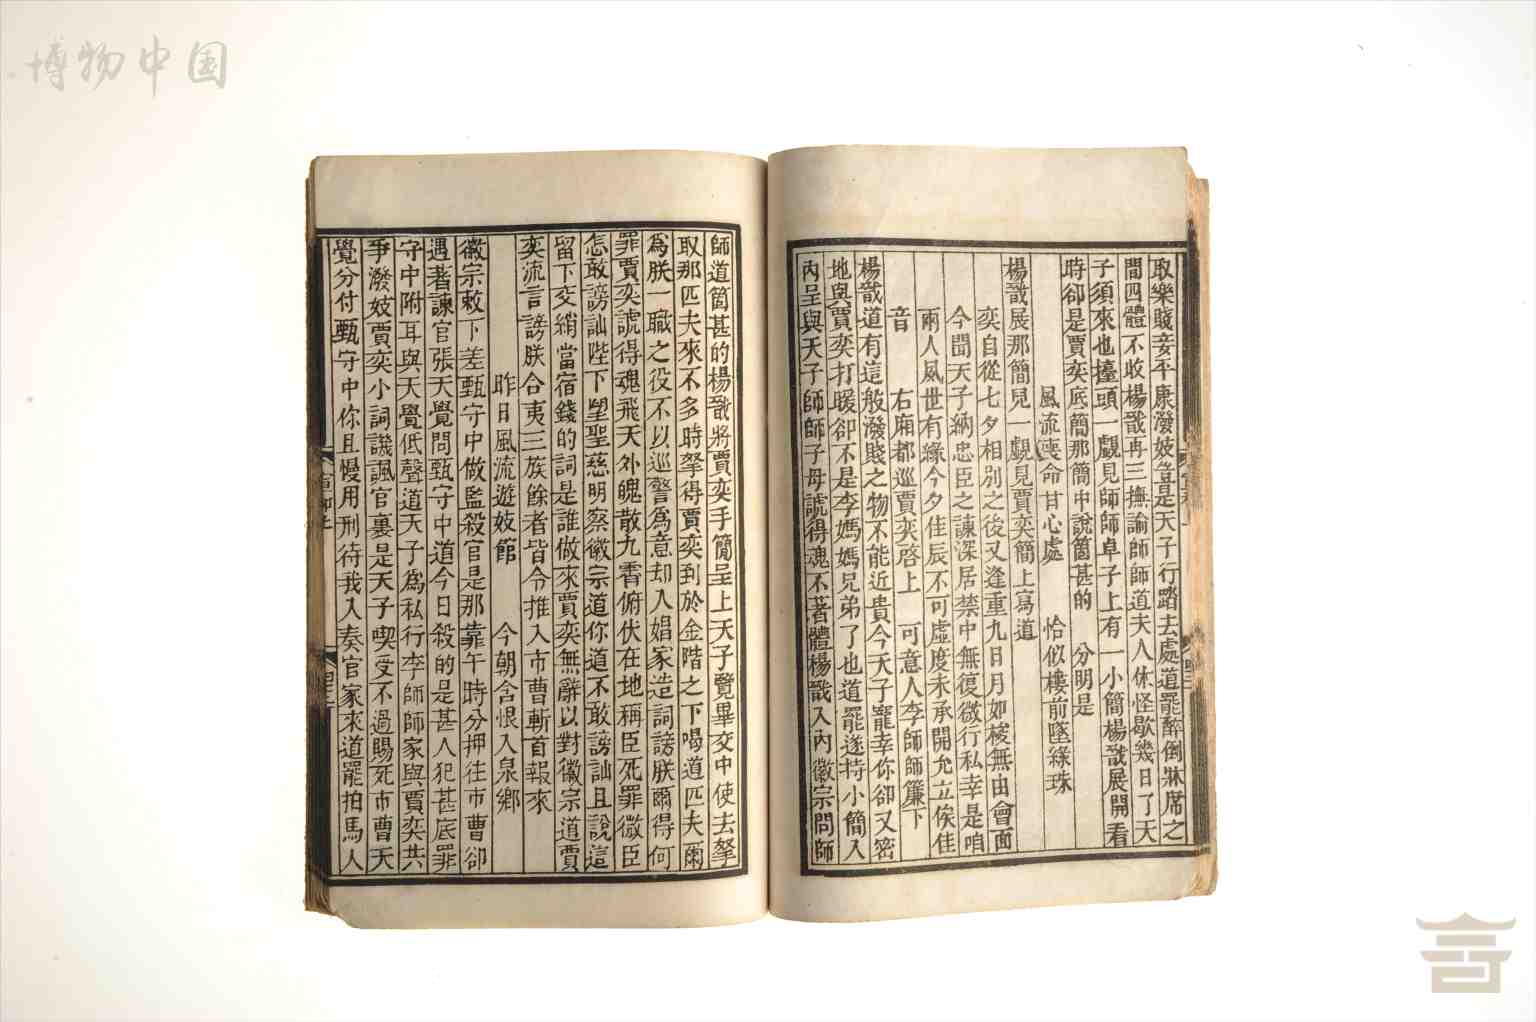 博物中国
取樂賤妾平康潑妓豈是天子行踏去處道罷醉倒牀席之
間四體不收楊戩再三撫諭師師道夫人休怪歇幾日了天
子須來也擡頭一覷見師師卓子上有一小簡楊戩展開看
時卻是賈奕底簡那簡中說箇甚的 分明是
風流喪命甘心處 恰似樓前墜綠珠
楊戩展那簡兒一覷見賈奕簡上寫道
奕自從七夕相別之後又逢重九日月如梭無由會面
今聞天子納忠臣之諫深居禁中無復微行私幸是咱
兩人風世有緣今夕佳辰不可虛度未承開允立俟佳
音 右廂都巡賈奕啓上 可意人李師師簾下
楊戩道有這般潑賤之物不能近貴今天子寵幸你卻又密
地與賈奕打暖卻不是李媽媽兄弟了也道罷遂持小簡入
內呈與天子師師子母諕得魂不著體楊戩入內徽宗問師
師道箇甚的楊戩將賈奕手簡呈上天子覽畢交中使去拏
取那匹夫來不多時拏得賈奕到於金階之下喝道匹夫爾
爲朕一職之役不以巡警爲意却入娼家造詞謗朕爾得何
罪賈奕諕得魂飛天外魄散九霄俯伏在地稱臣死罪微臣
怎敢謗訕陛下望聖慈明察徽宗道你道不敢謗訕且說這
留下交綃當宿錢的詞是誰做來賈奕無辭以對徽宗道賈
奕流言謗朕合夷三族餘者皆令推入市曹斬首報來
昨日風流遊妓館 今朝含恨入泉鄉
徽宗敕下差甄守中做監殺官是那靠午時分押往市曹卻
遇著諫官張天覺問甄守中道今日殺的是甚人犯甚底罪
守中附耳與天覺低聲道天子爲私行李師師家與賈奕共
爭潑妓賈奕小詞譏諷官裏是天子喫受不過賜死市曹天
覺分付甄守中你且慢用刑待我入奏官家來道罷拍馬人